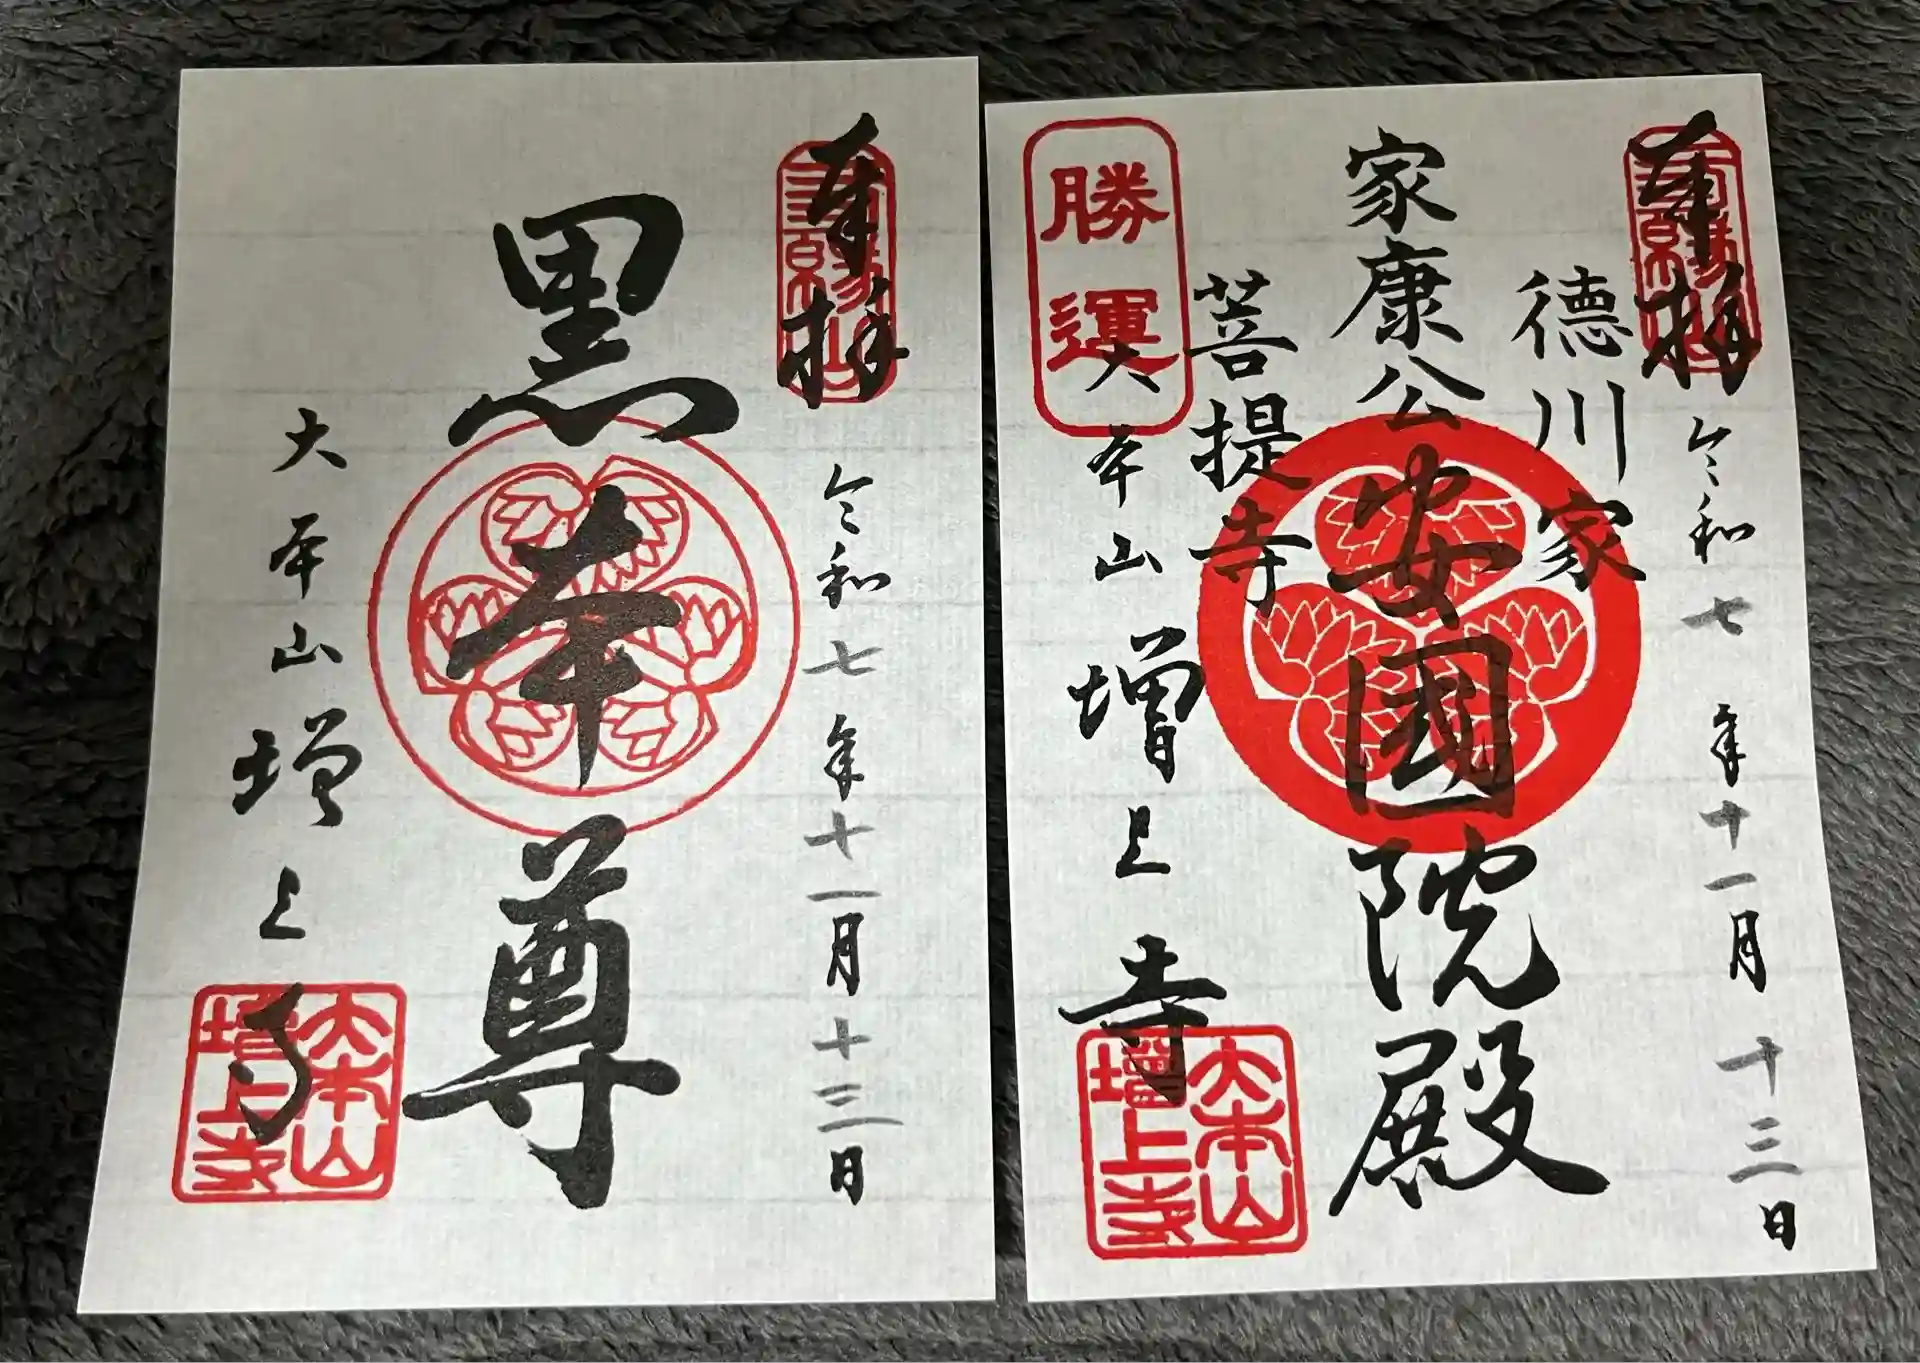 奉拝
令和七年十一月十三日
黒本尊
大本山増上寺
大本山
増上寺
奉拝
令和七年十一月十三日
徳川家
家康公
安國院殿
菩提寺
勝運
大本山増上寺
大本山
増上寺